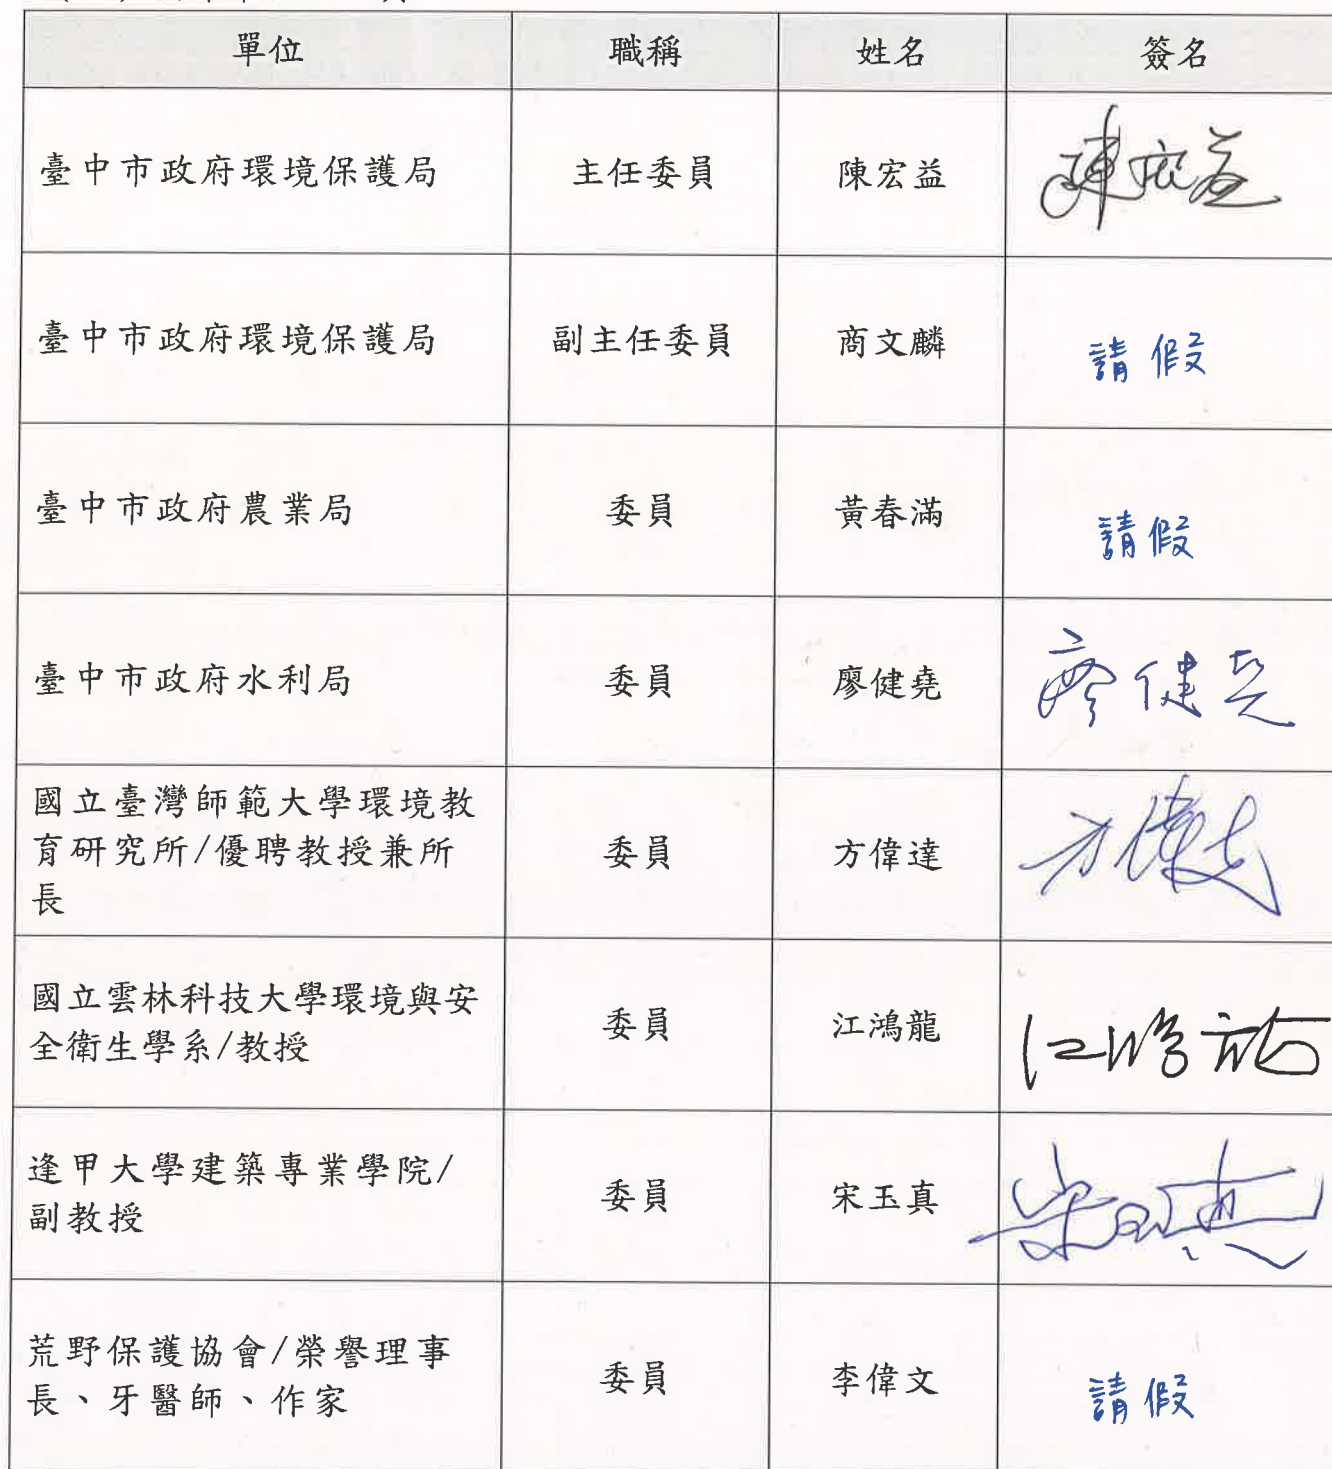 單位 職稱 姓名 簽名
臺中市政府環境保護局 主任委員 陳宏益 陳宏益
臺中市政府環境保護局 副主任委員 商文麟 請假
臺中市政府農業局 委員 黃春滿 請假
臺中市政府水利局 委員 廖健堯 廖健堯
國立臺灣師範大學環境教
育研究所/優聘教授兼所
長
委員 方偉達 方偉達
國立雲林科技大學環境與安
全衛生學系/教授
委員 江鴻龍 江鴻龍
逢甲大學建築專業學院/
副教授
委員 宋玉真 宋玉真
荒野保護協會/榮譽理事
長、牙醫師、作家
委員 李偉文 請假